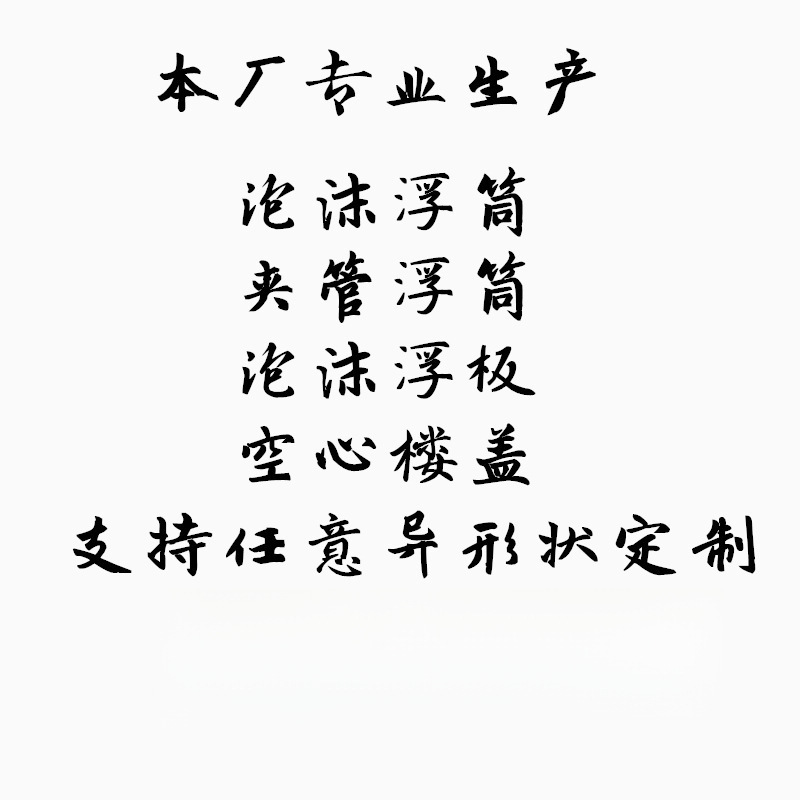 本厂专业生产
泡沫浮筒
夹管浮筒
泡沫浮板
空心楼盖
支持任意异形状定制